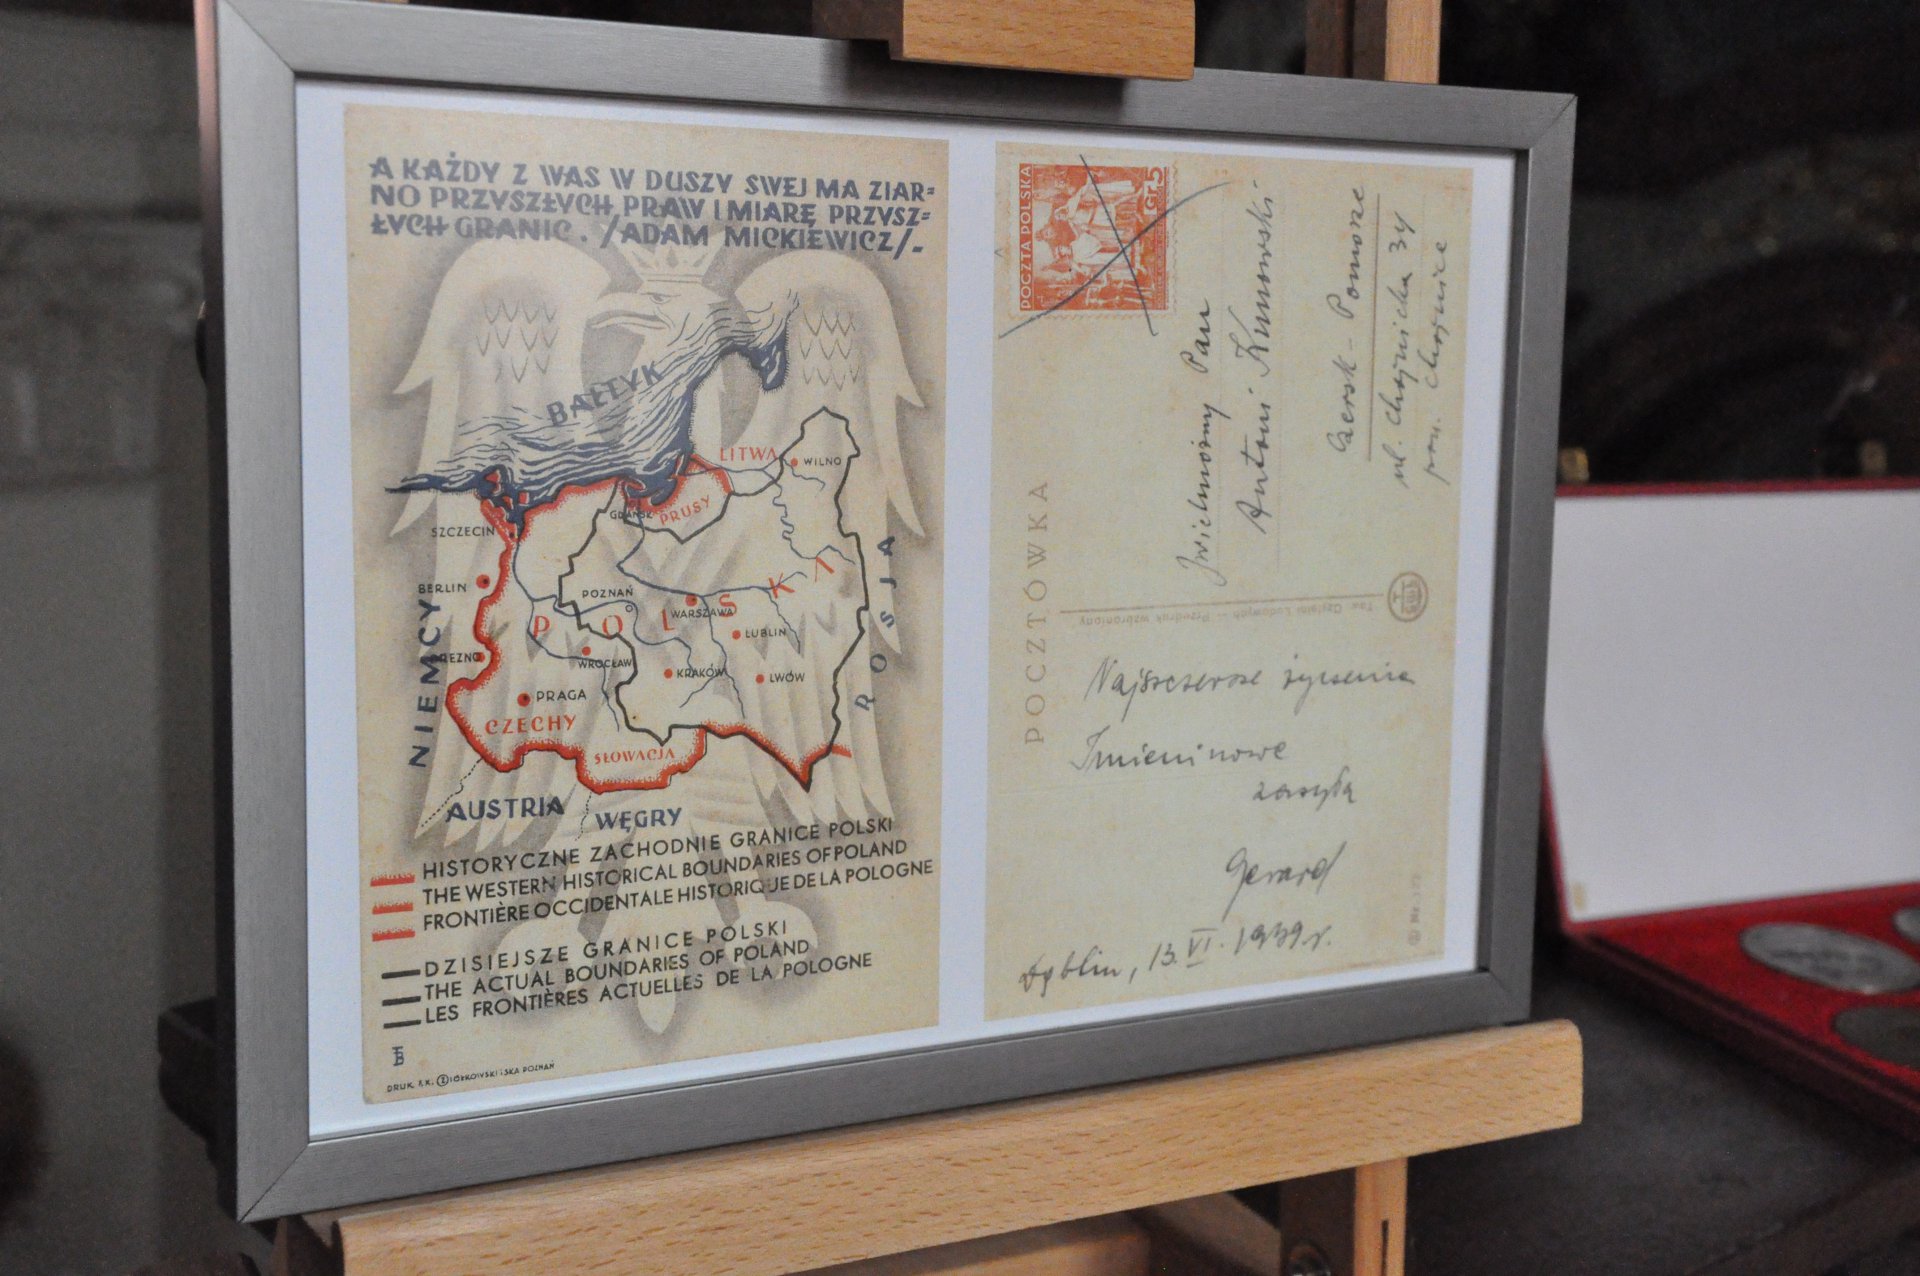 A KAŻDY Z WAS W DUSZY SWEJ MA ZIAR=
NO PRZYSZŁYCH PRAW I MIARĘ PRZYSZ=
ŁYCH GRANIC. /ADAM MICKIEWICZ/-
BAŁTYK
LITWA
WILNO
GDAŃSK
PRUSY
SZCZECIN
BERLIN
POZNAŃ
WARSZAWA
POLSKA
LUBLIN
NIEMCY
ROSJA
DREZNO
WROCŁAW
KRAKÓW
LWÓW
PRAGA
CZECHY
SŁOWACJA
AUSTRIA
WĘGRY
HISTORYCZNE ZACHODNIE GRANICE POLSKI
THE WESTERN HISTORICAL BOUNDARIES OF POLAND
FRONTIÈRE OCCIDENTALE HISTORIQUE DE LA POLOGNE
DZISIEJSZE GRANICE POLSKI
THE ACTUAL BOUNDARIES OF POLAND
LES FRONTIÈRES ACTUELLES DE LA POLOGNE
DRUK. F.K. ZIÓŁKOWSKI I SKA POZNAŃ
POCZTA POLSKA
5 GR
Jwielmożny Pan
Antoni Kunowski
Czersk - Pomorze
ul. Chojnicka 34
pow. Chojnice
POCZTÓWKA
Tow. Czytelni Ludowych — Przedruk wzbroniony
Najszczersze życzenia
Imieninowe
zasyła
Gerard
13.VI.1939 r.